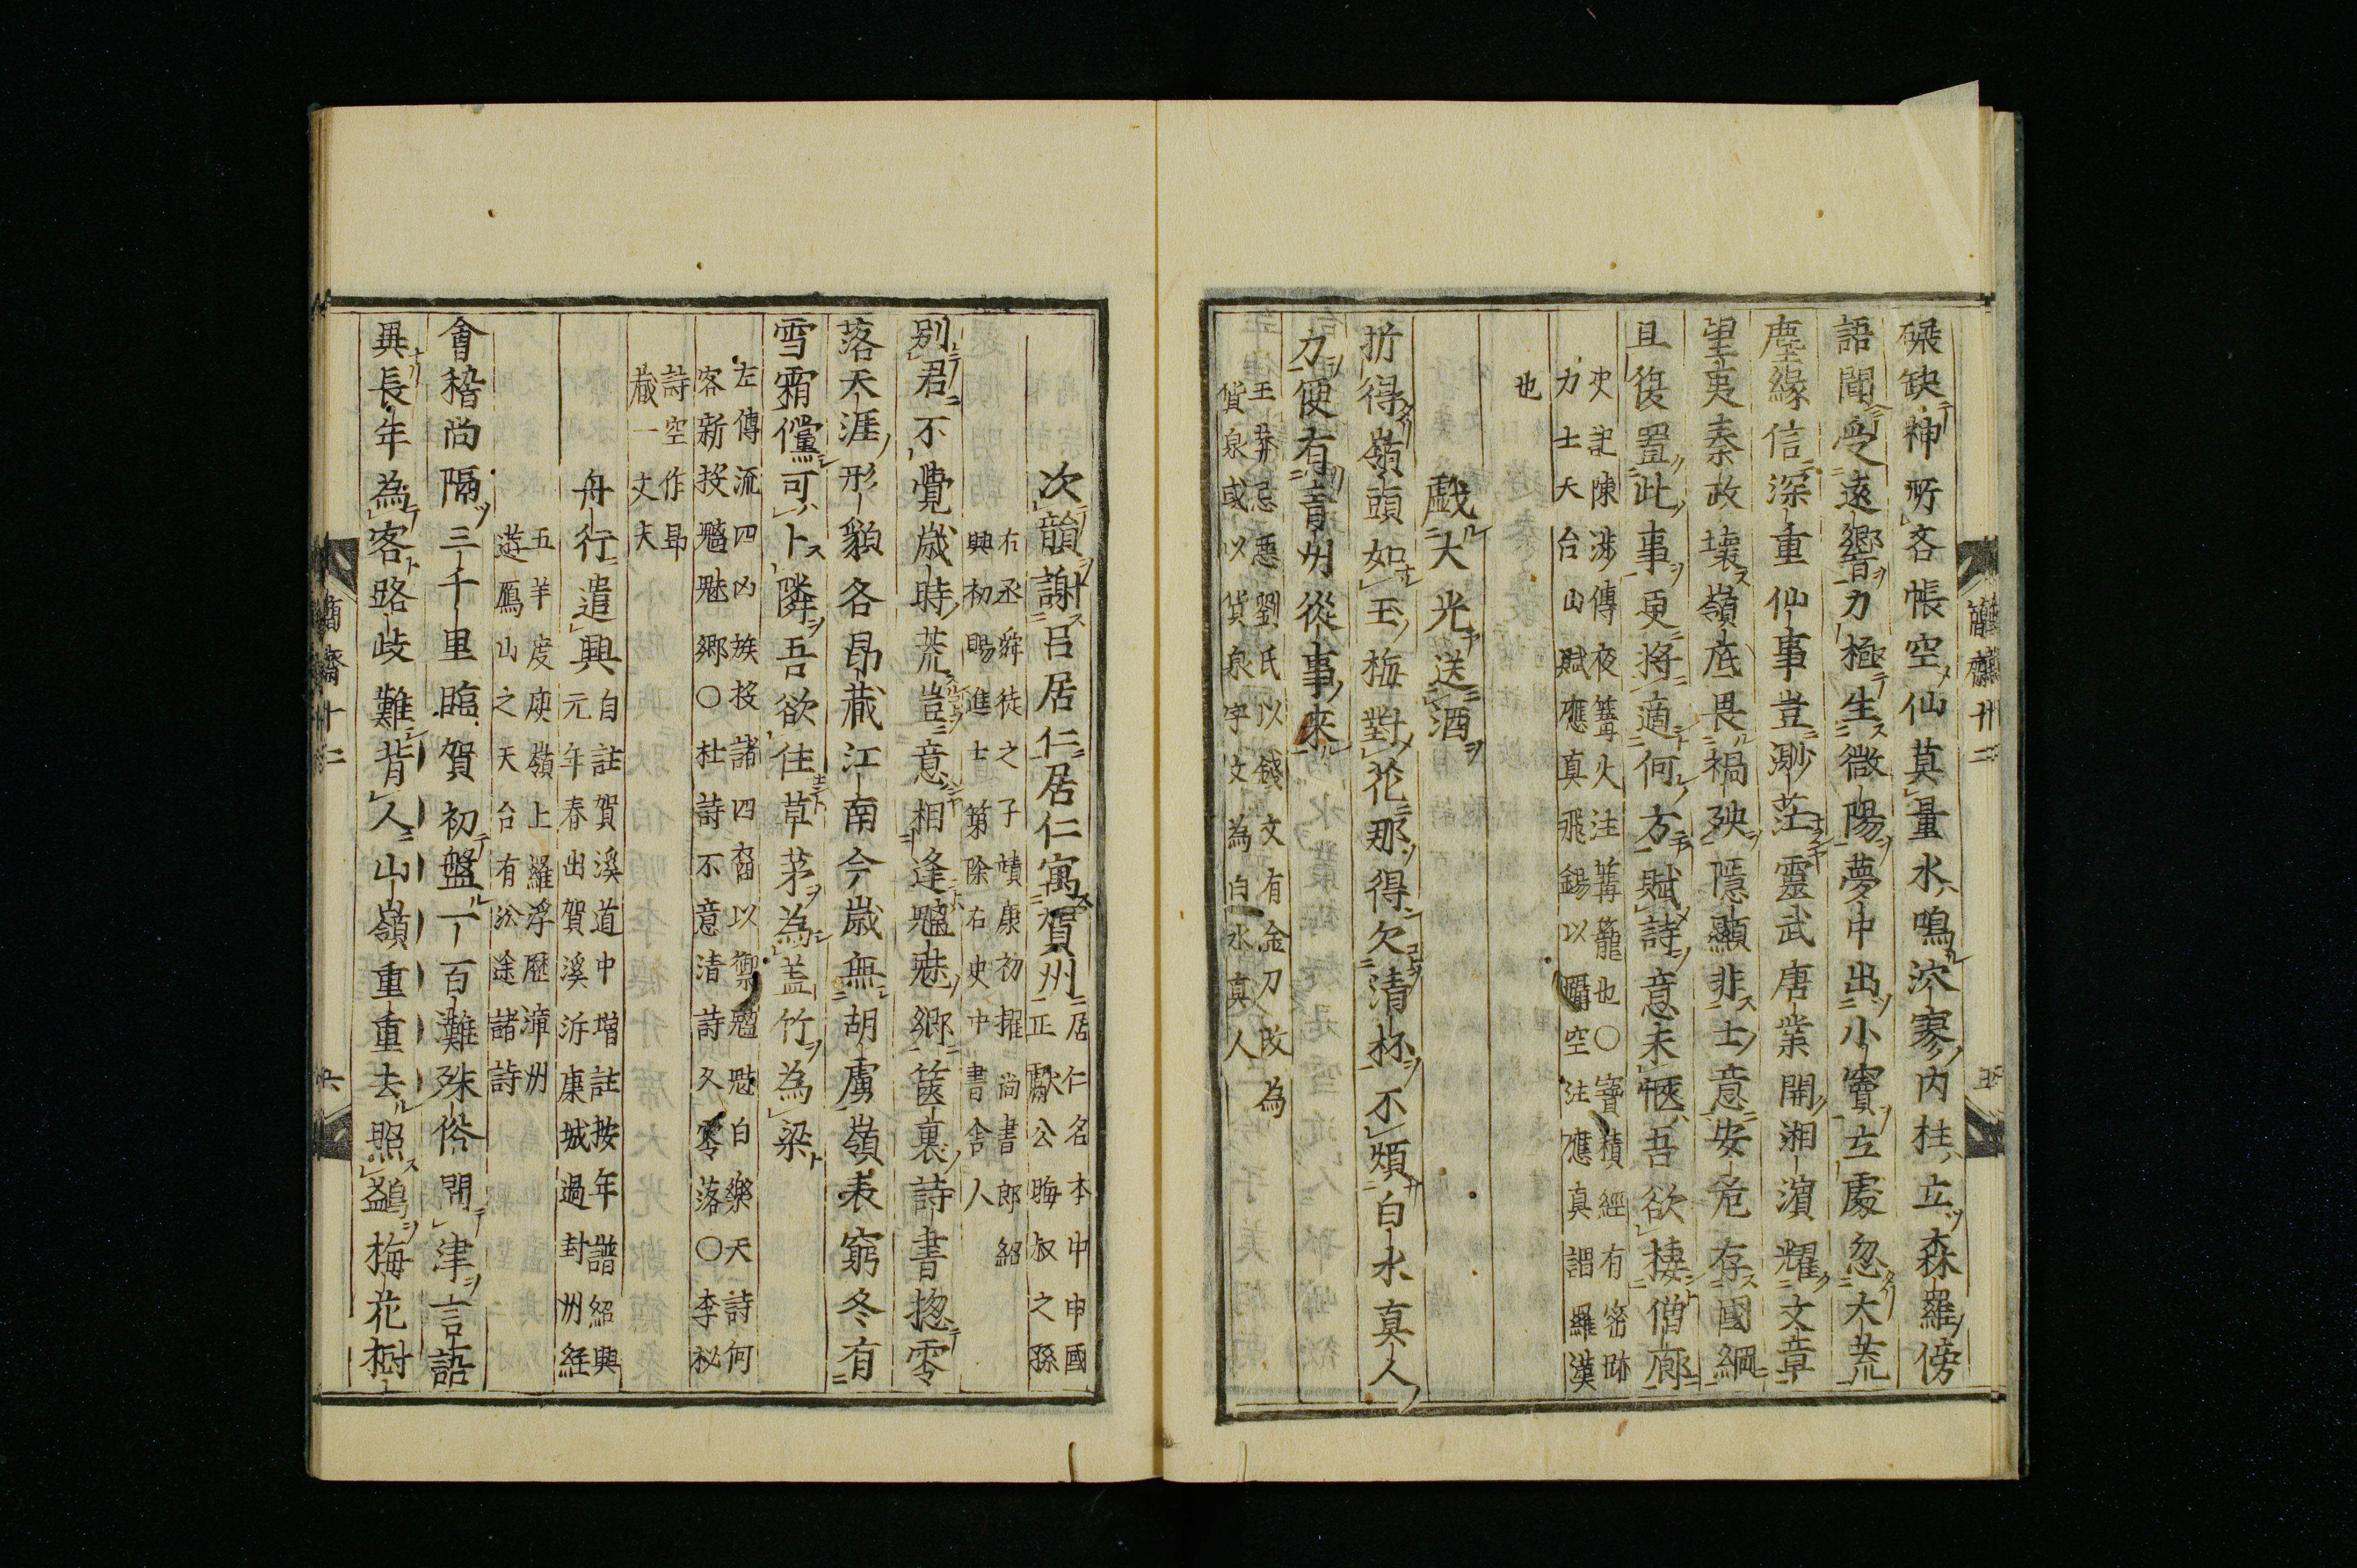 碾缺神所吝帳空仙莫量水鳴泬寥內柱立森羅傍
語聞受遠響力極生微陽夢中出小竇立處忽大荒
塵緣信深重仙事豈渺茫靈武唐業開湘濱耀文章
望夷秦政壊嶺底畏禍殃隱顯非士意安危存國綱
且復置此事更將適何方賦詩意未愜吾欲棲僧廊
史記陳涉傳夜篝火注篝籠也○寶積經有密跡
力士天台山賦應真飛錫以躡空注應真謂羅漢
也
戯大光送酒
折得嶺頭如玉梅對花那得欠清杯不煩白水真人
力便有青州從事來
王莽忌惡劉氏以錢文有金刀改為
貨泉或以貨泉字文為白水真人
次韻謝呂居仁居仁寓賀州
居仁名本中申國
正獻公晦叔之孫
右丞舜徒之子靖康初擢尚書郎紹
興初賜進士第除右史中書舍人
別君不覺歳時荒豈意相逢魑魅郷篋裏詩書揔零
落天涯形貌各昂藏江南今歳無胡虜嶺表窮冬有
雪霜儻可卜隣吾欲住草茅為蓋竹為梁
左傳流四凶族投諸四裔以禦魑魅白樂天詩何
客新投魑魅郷○杜詩不意清詩久零落○李祕
詩空作昻
藏一丈夫
舟行遣興
自註賀溪道中増註按年譜紹興
元年春出賀溪泝康城過封州經
五羊度庾嶺上羅浮歴漳州
遊鴈山之天台有沿途諸詩
會稽尚隔三千里臨賀初盤一百灘殊俗問津言語
異長年為客路歧難背人山嶺重重去照鷁梅花樹
簡齋十二
六
五